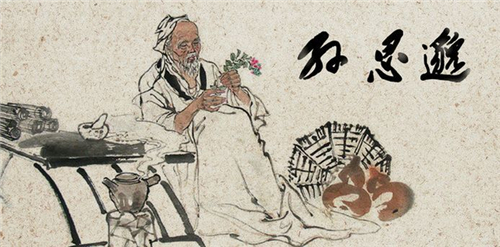 孙思邈